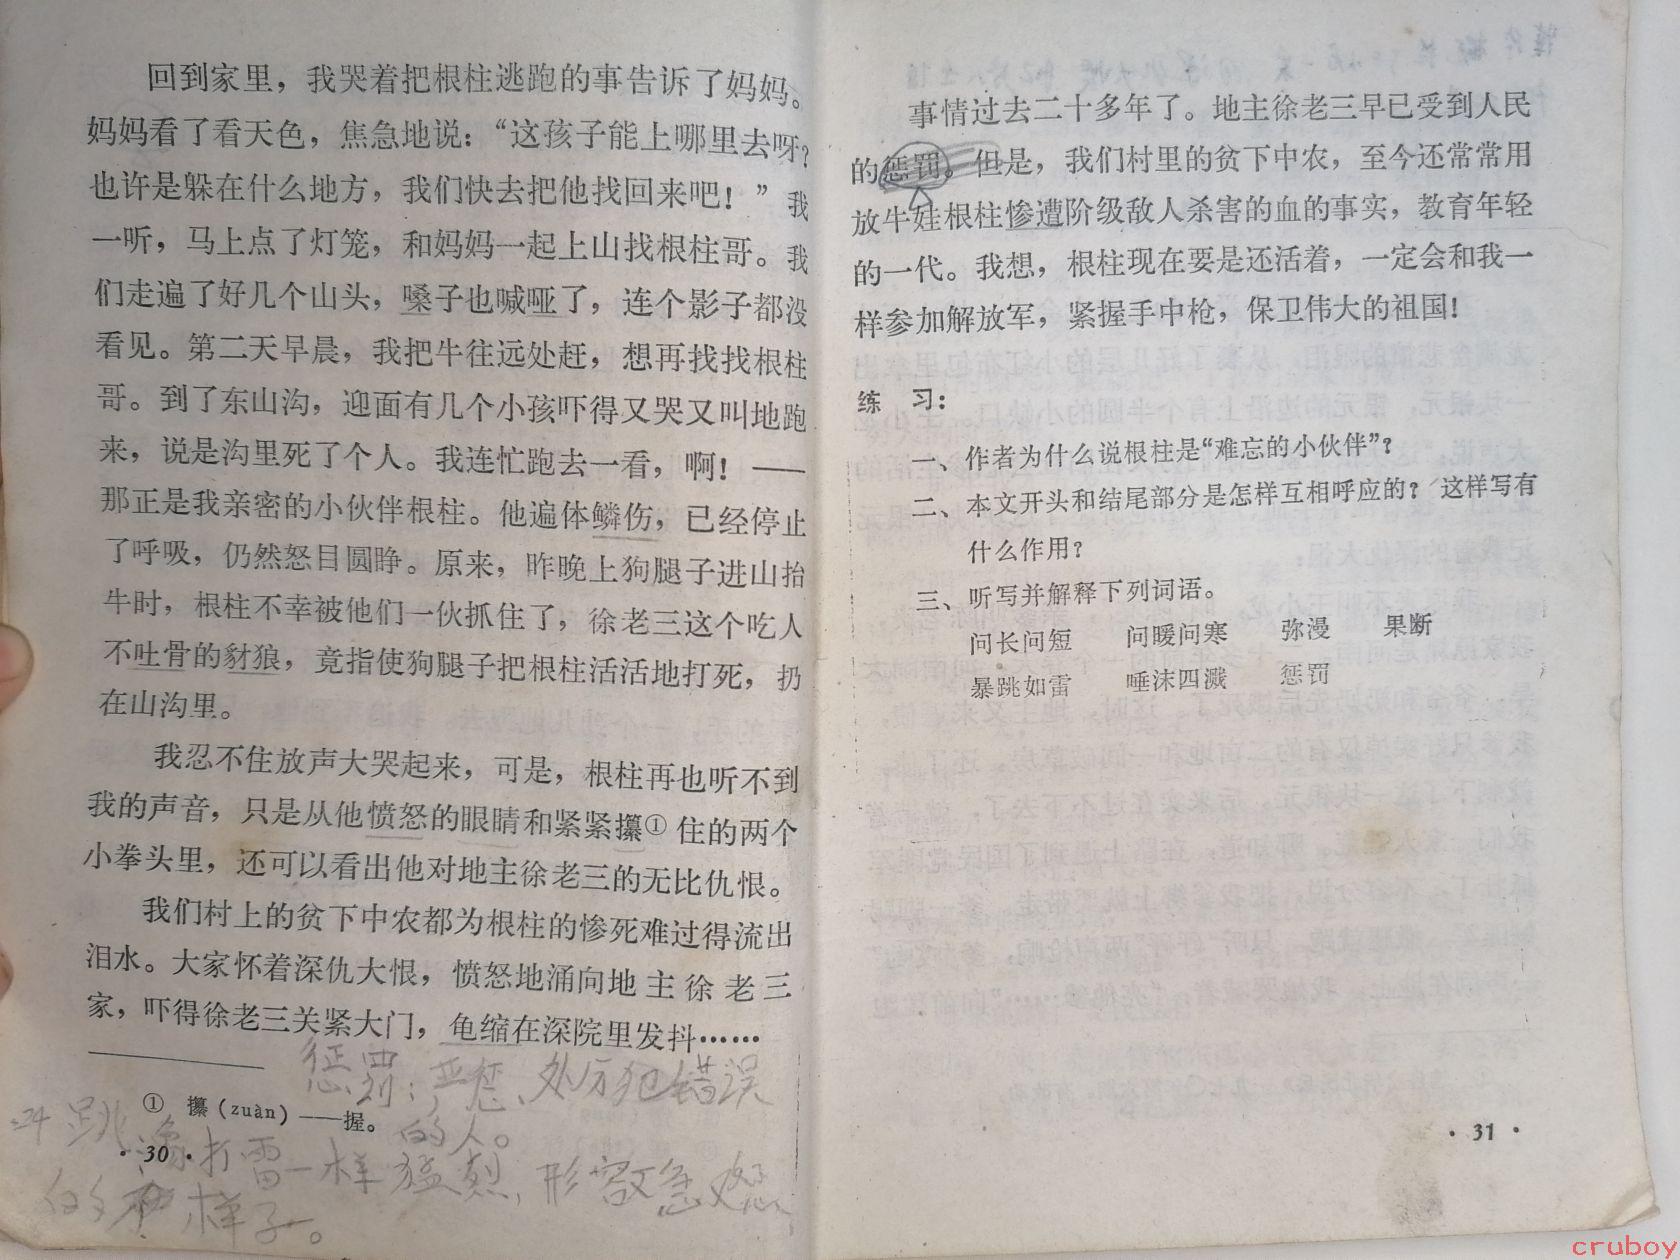 回到家里，我哭着把根柱逃跑的事告诉了妈妈。
妈妈看了看天色，焦急地说：“这孩子能上哪里去呀？
也许是躲在什么地方，我们快去把他找回来吧！”我
一听，马上点了灯笼，和妈妈一起上山找根柱哥。我
们走遍了好几个山头，嗓子也喊哑了，连个影子都没
看见。第二天早晨，我把牛往远处赶，想再找找根柱
哥。到了东山沟，迎面有几个小孩吓得又哭又叫地跑
来，说是沟里死了个人。我连忙跑去一看，啊！——
那正是我亲密的小伙伴根柱。他遍体鳞伤，已经停止
了呼吸，仍然怒目圆睁。原来，昨晚上狗腿子进山抬
牛时，根柱不幸被他们一伙抓住了，徐老三这个吃人
不吐骨的豺狼，竟指使狗腿子把根柱活活地打死，扔
在山沟里。
我忍不住放声大哭起来，可是，根柱再也听不到
我的声音，只是从他愤怒的眼睛和紧紧攥①住的两个
小拳头里，还可以看出他对地主徐老三的无比仇恨。
我们村上的贫下中农都为根柱的惨死难过得流出
泪水。大家怀着深仇大恨，愤怒地涌向地主徐老三
家，吓得徐老三关紧大门，龟缩在深院里发抖……
惩罚：严惩、处罚犯错误
① 攥(zuàn)——握。
的人。
跳像打雷一样猛烈，形容又急又怒
· 30 ·
的样子。
事情过去二十多年了。地主徐老三早已受到人民
的惩罚。但是，我们村里的贫下中农，至今还常常用
放牛娃根柱惨遭阶级敌人杀害的血的事实，教育年轻
的一代。我想，根柱现在要是还活着，一定会和我一
样参加解放军，紧握手中枪，保卫伟大的祖国！
练 习：
一、作者为什么说根柱是“难忘的小伙伴”？
二、本文开头和结尾部分是怎样互相呼应的？这样写有
什么作用？
三、听写并解释下列词语。
问长问短 问暖问寒 弥漫 果断
暴跳如雷 唾沫四溅 惩罚
· 31 ·
cruboy